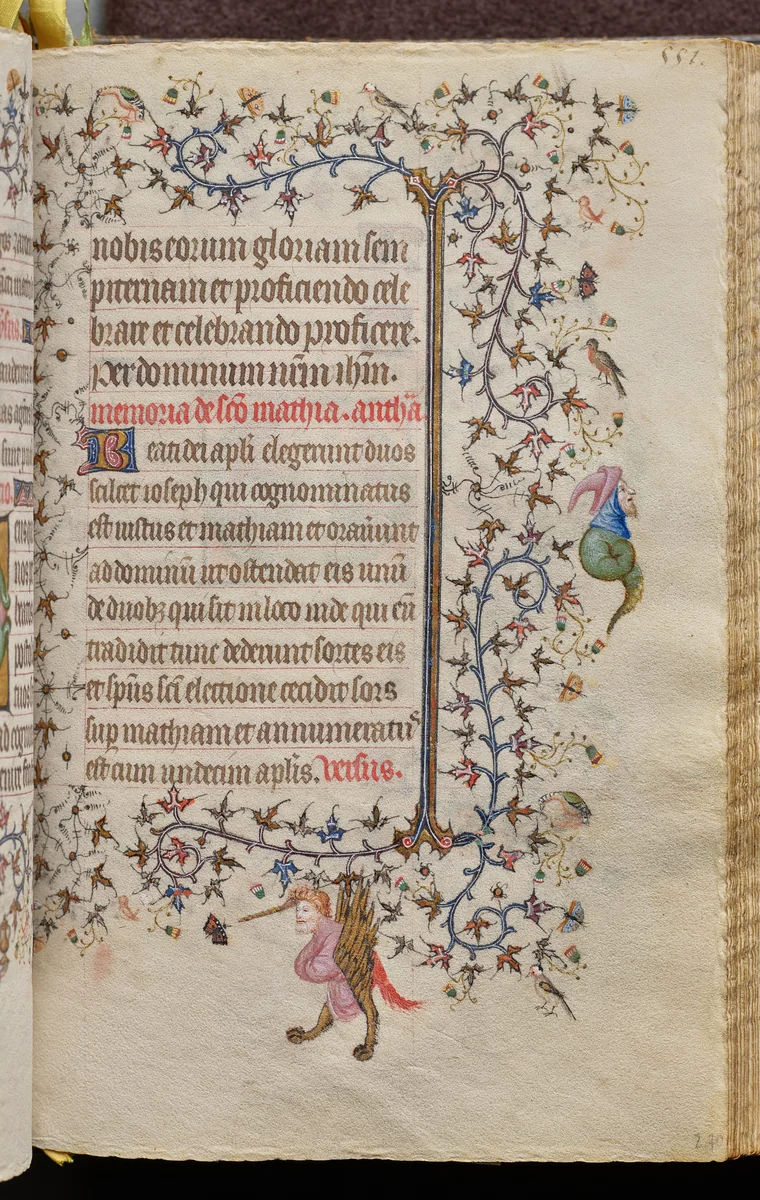 551.
nobis eorum gloriam sem
piternam et proficiendo cele
brare et celebrando proficere.
Per dominum nr̄m ihm̄.
memoria de sc̄o mathia. anth̄a
Beati dei apl̄i elegerunt duos
scilicet ioseph qui cognominatus
est iustus et mathiam et orauer̄unt
ad dominū ut ostendat eis unū
de duobꝫ qui sit in loco iude qui eū
tradidit tunc dederunt sortes eis
et sp̄us sc̄i electione cecidit sors
suꝑ mathiam et annumeratus
est cum undecim apl̄is. Versus.